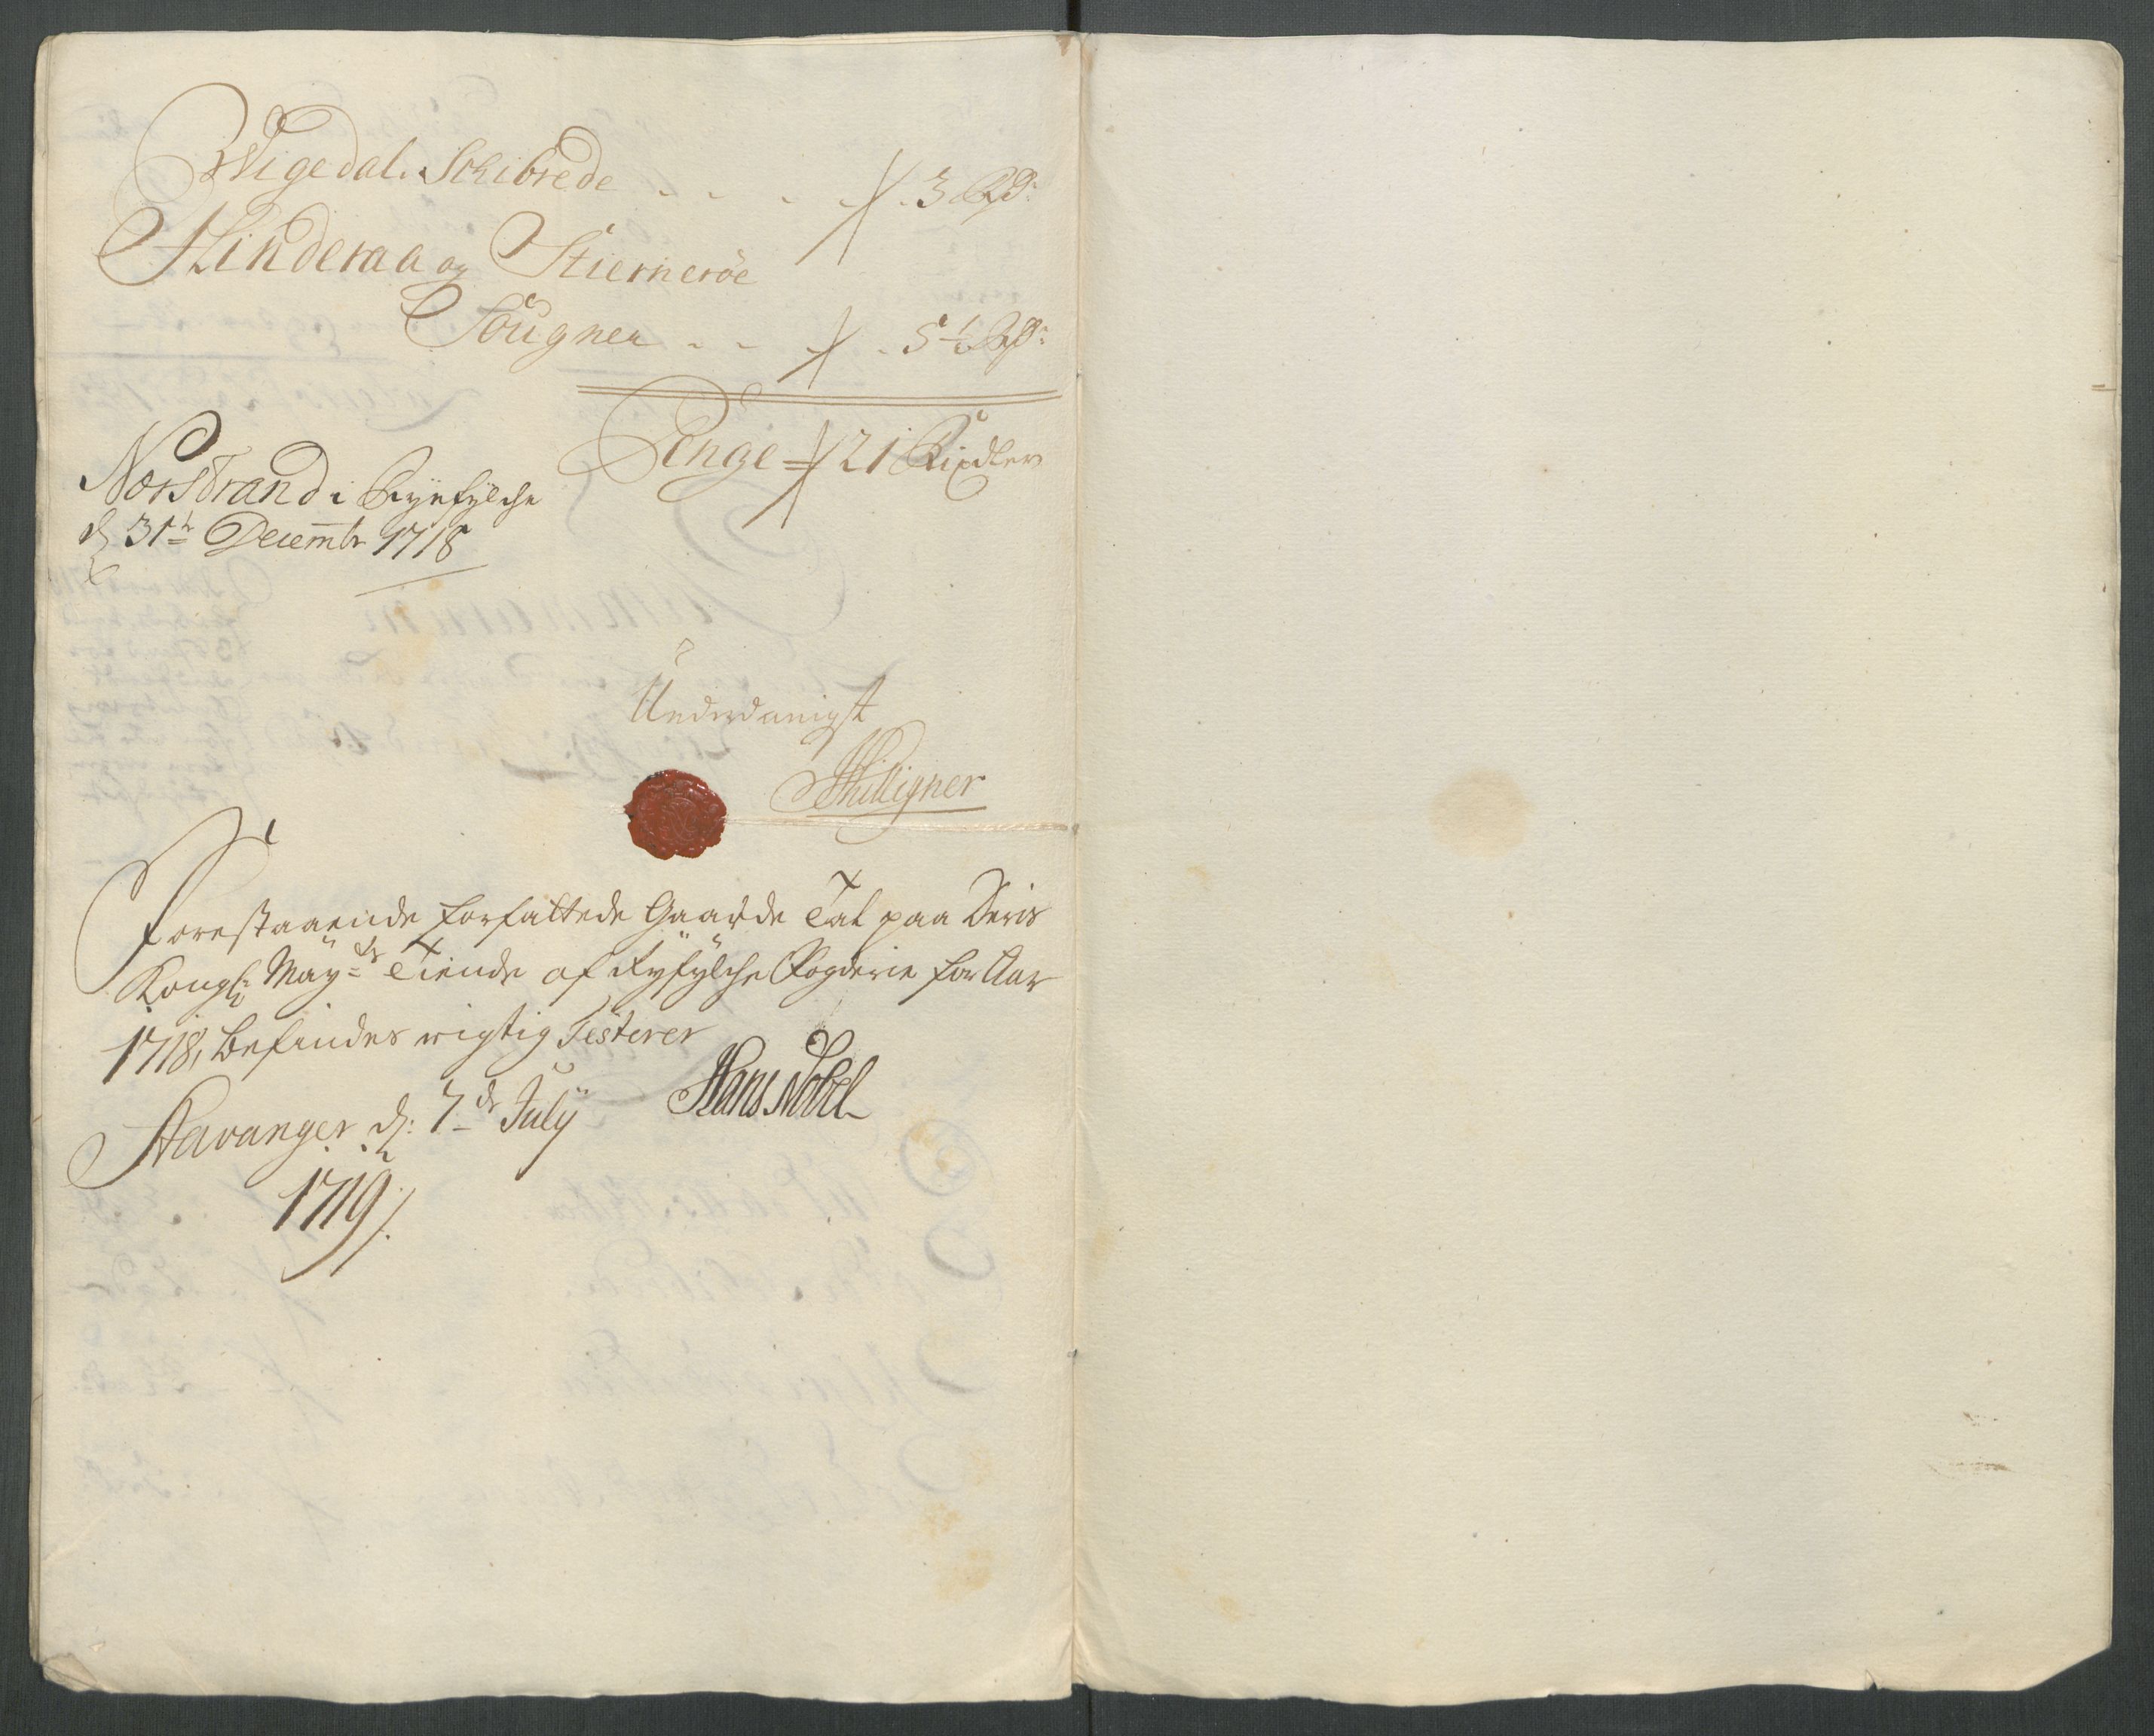 Wigedals Schibrede . . . . 3 Rd:
Hinderaa og Stierneröe
Sougner . . . . 5½ Rd:
Penge 21 Rixdler
Norstrand i Ryefylche
d 31te Decembr 1718
Underdanigst
Forestaaende forfattede Gaarde Tal paa Deris
Kongl: Mayts Tiende af Ryfylche Fogderie for Aar
1718, befindes rigtig Testerer
Hans Nobel
Stavanger d: 7de July
1719